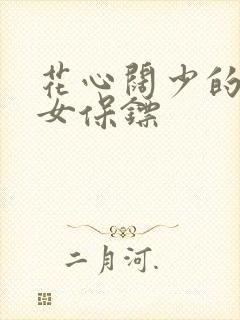 花心阔少的
女保镖
二月河.